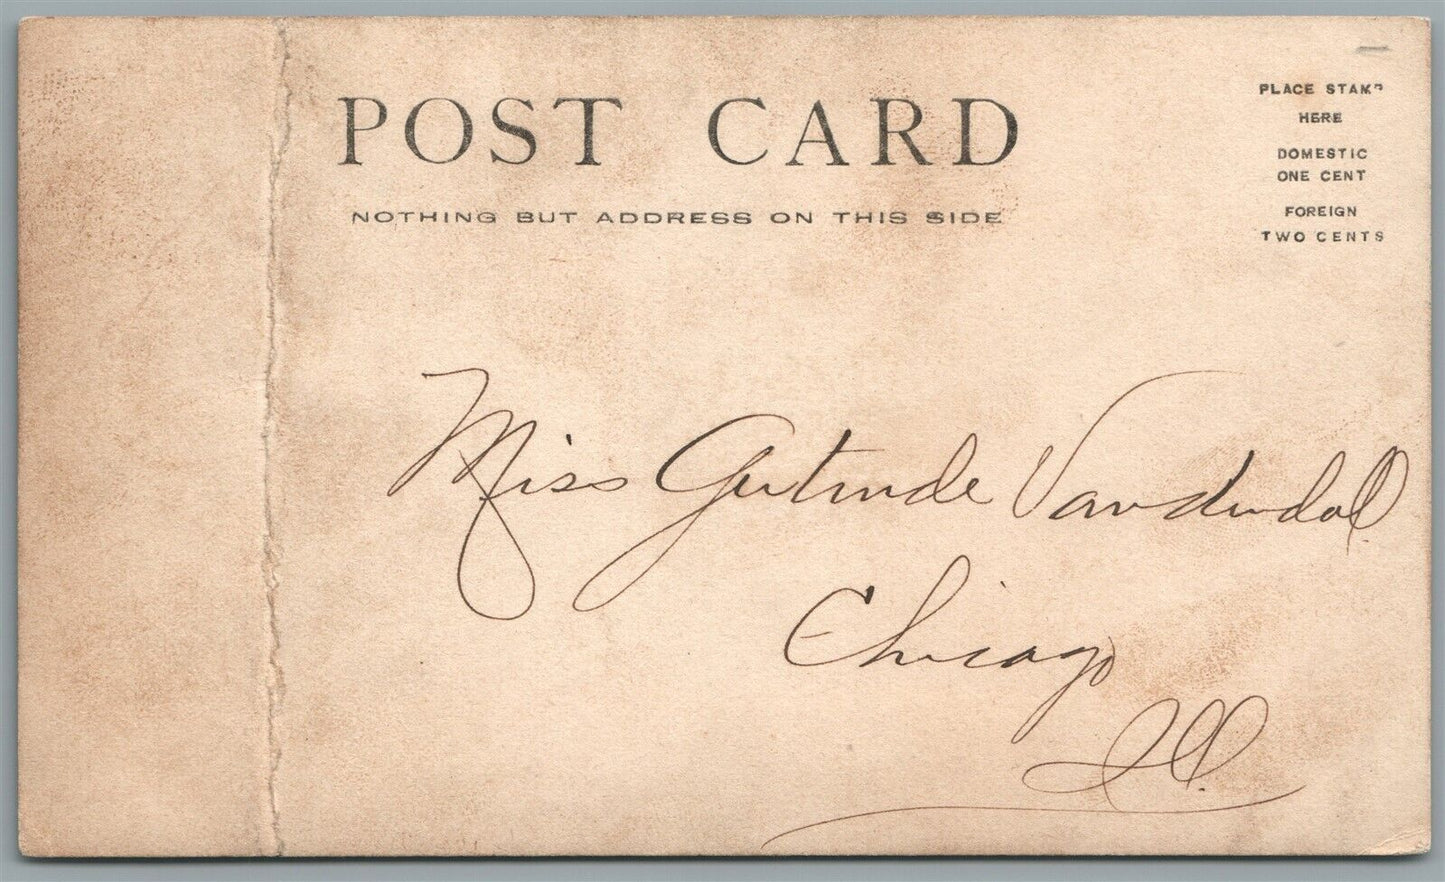 POST CARD
NOTHING BUT ADDRESS ON THIS SIDE
PLACE STAMP
HERE
DOMESTIC
ONE CENT
FOREIGN
TWO CENTS
Miss Gertrude
Chicago
Ill.